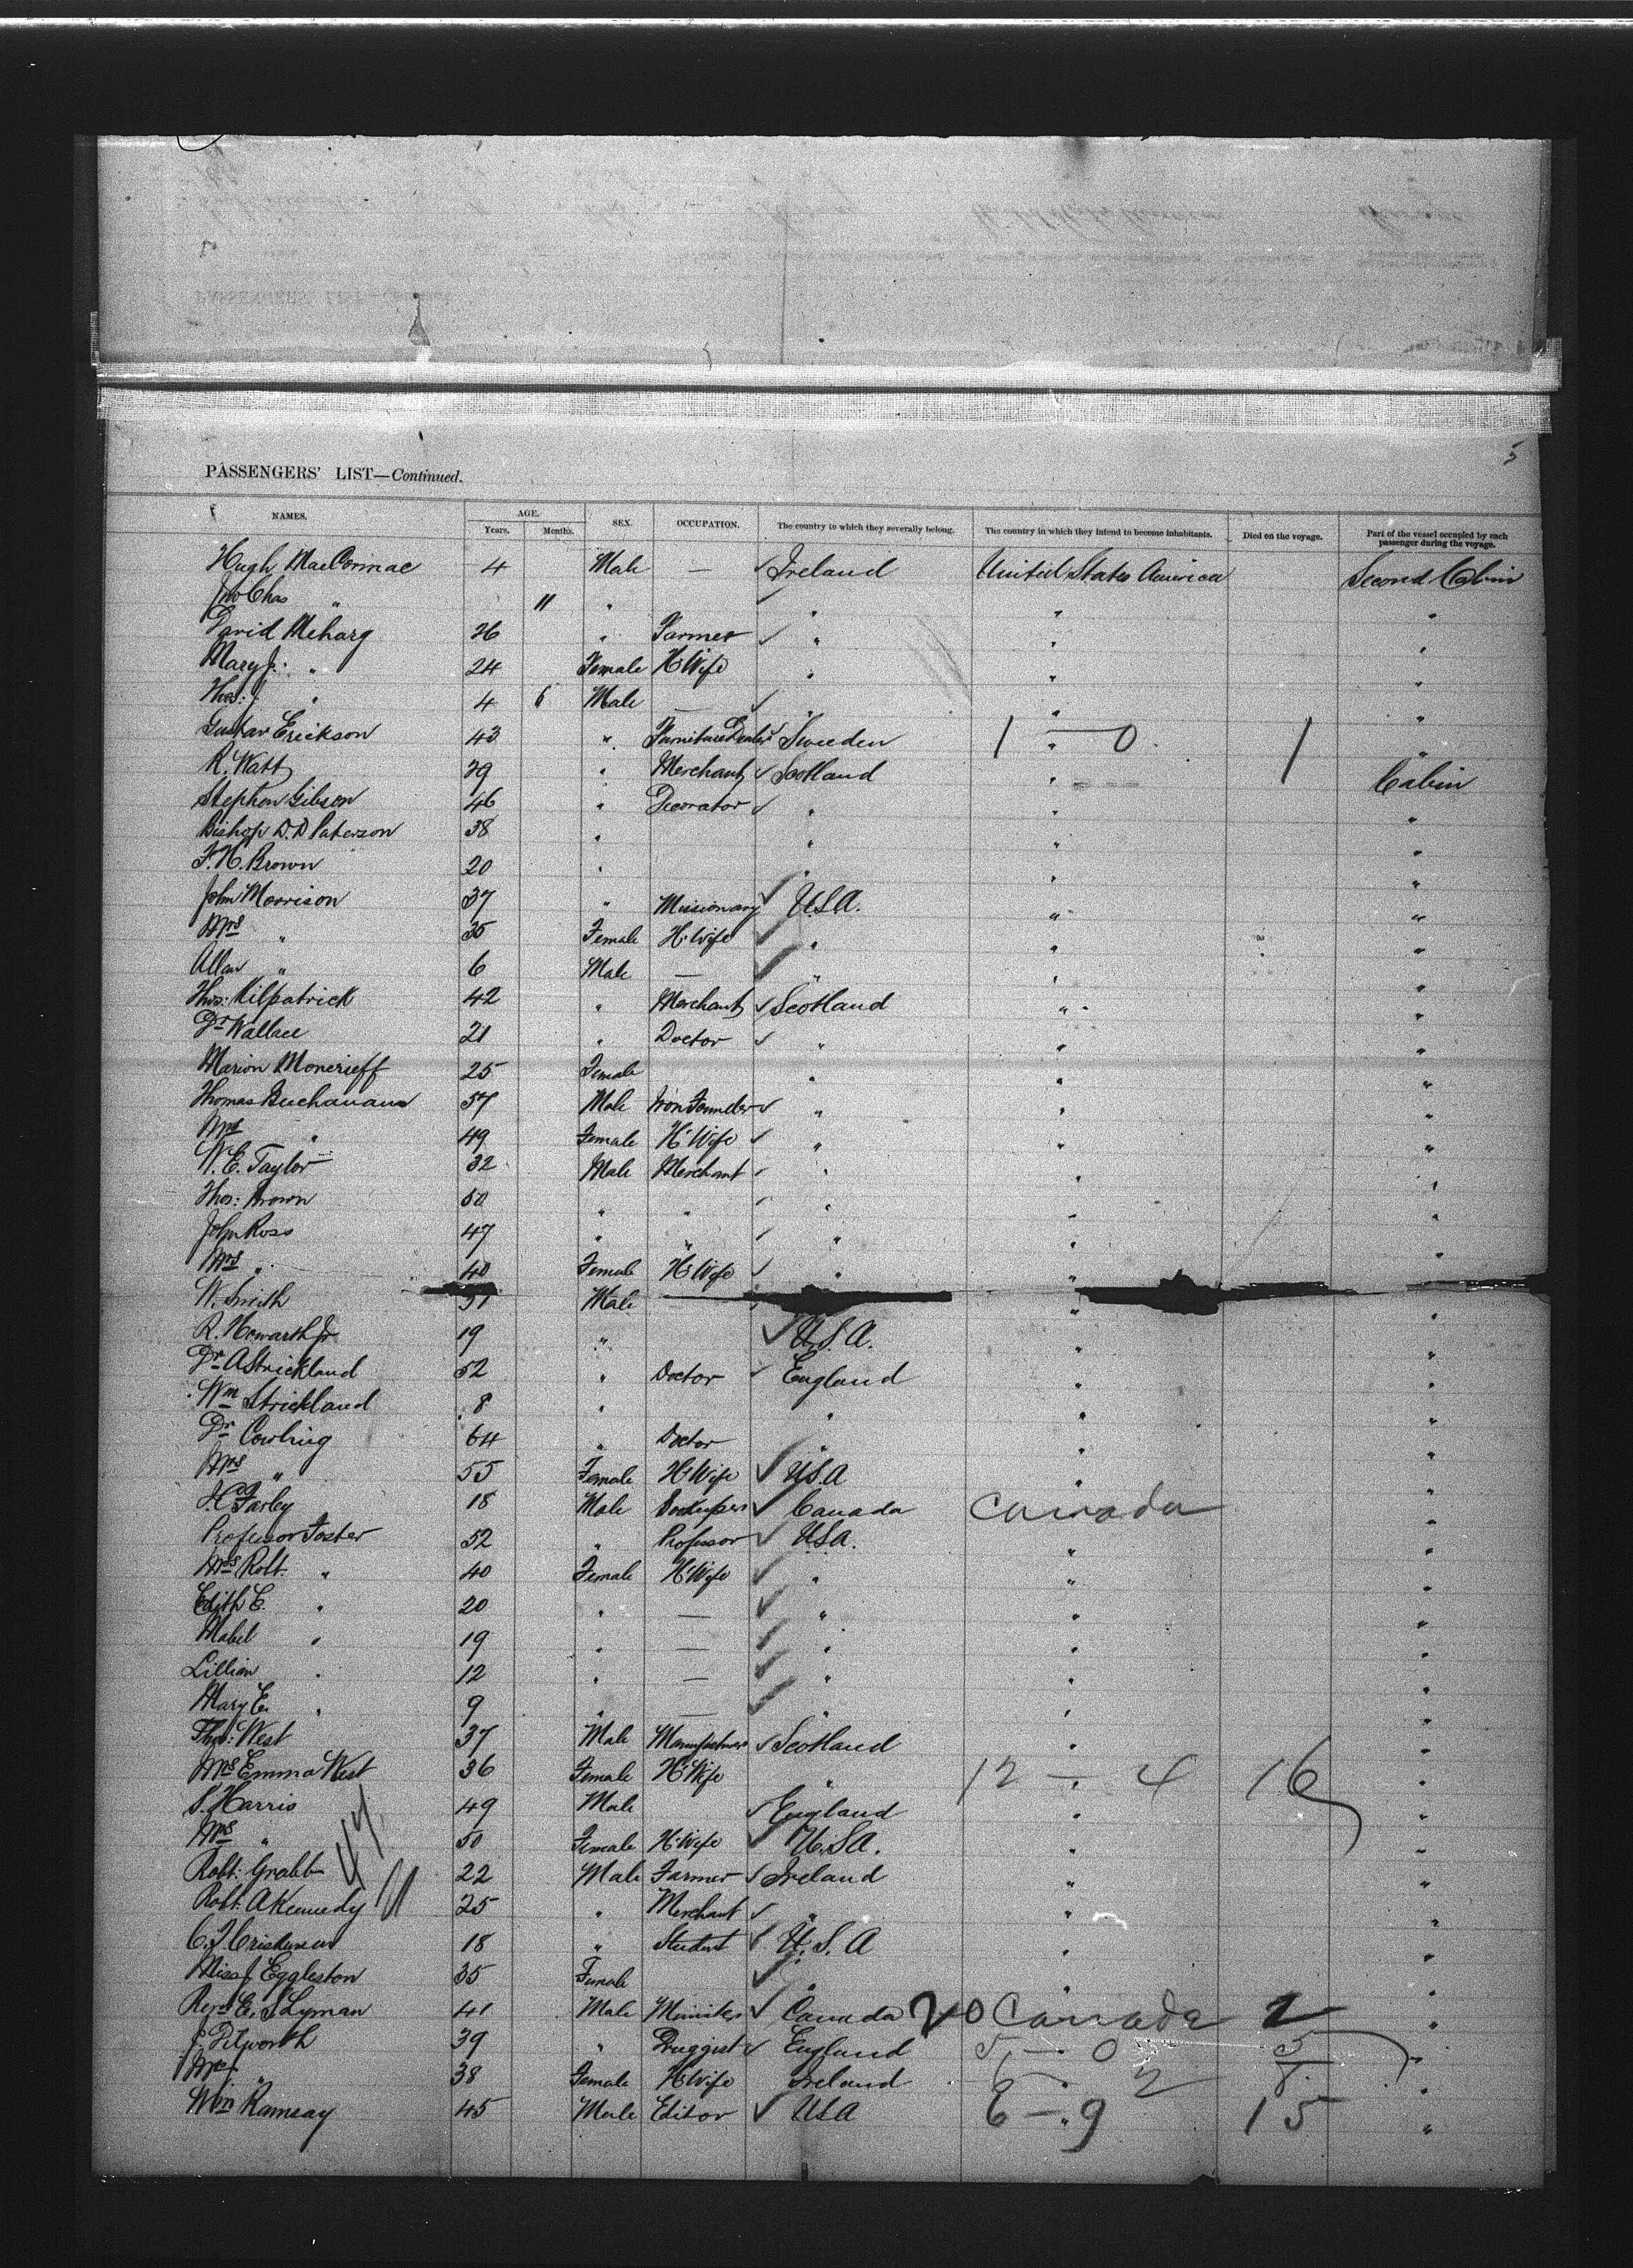 5
PASSENGERS' LIST—Continued.
NAMES. AGE. SEX. OCCUPATION. The country to which they severally belong. The country in which they intend to become inhabitants. Died on the voyage. Part of the vessel occupied by each passenger during the voyage.
Years. Months.
Hugh MacCormac 4 Male — Ireland United States America Second Cabin
Jno Chas " 11 " " " "
David Meharg 26 " Farmer " " "
Mary J. " 24 Female H. Wife " " "
Thos: J. " 4 6 Male — " " "
Gustav Erickson 43 " Furniture Dealer Sweden 1 " — 0 1 "
R. Watt 29 " Merchant Scotland " Cabin
Stephen Gibson 46 " Decorator " " "
Bishop D. D Paterson 38 " " " "
F. H. Brown 20 " " " "
John Morrison 37 " Missionary U.S.A. " "
Mrs " 35 Female H. Wife " " "
Allan " 6 Male — " " "
Thos: Kilpatrick 42 " Merchant Scotland " "
Dr Wallace 21 " Doctor " " "
Marion Moncrieff 25 Female " " "
Thomas Buchanan 57 Male Iron Founder " " "
Mrs " 49 Female H. Wife " " "
W. E. Taylor 32 Male Merchant " " "
Thos: Brown 50 " " " " "
John Ross 47 " " " " "
Mrs " 40 Female H. Wife " " "
W. Smith Male " "
R. Howarth Jr 19 " U.S.A. " "
Dr A Strickland 52 " Doctor England " "
Wm Strickland 8 " " " "
Dr Cowling 64 " Doctor " " "
Mrs " 55 Female H. Wife U.S.A " "
H Farley 18 Male Canada Canada "
Professor Foster 52 " Professor U.S.A. " "
Mrs Robt. " 40 Female H. Wife " " "
Edith E. " 20 " — " " "
Mabel " 19 " — " " "
Lillian " 12 " — " " "
Mary E. " 9 " — " " "
Thos: West 37 Male Manufacturer Scotland " "
Mrs Emma West 36 Female H. Wife " 12 — " 4 16 "
S. Harris 49 Male England " "
Mrs " 50 Female H. Wife U.S.A. " "
Robt: Grabb 22 Male Farmer Ireland " "
Robt: A Kennedy 25 " Merchant " " "
C. J. 18 " Student U.S.A " "
Miss J. Eggleston 35 Female " " "
Revd E. S Lyman 41 Male Minister Canada 20 Canada 2 "
J. Dilworth 39 " Druggist England 5 — 0 5 "
Mrs " 38 Female H. Wife Ireland 6 — 2 8 "
Wm Ramsay 45 Male Editor USA 6 — " 9 15 "